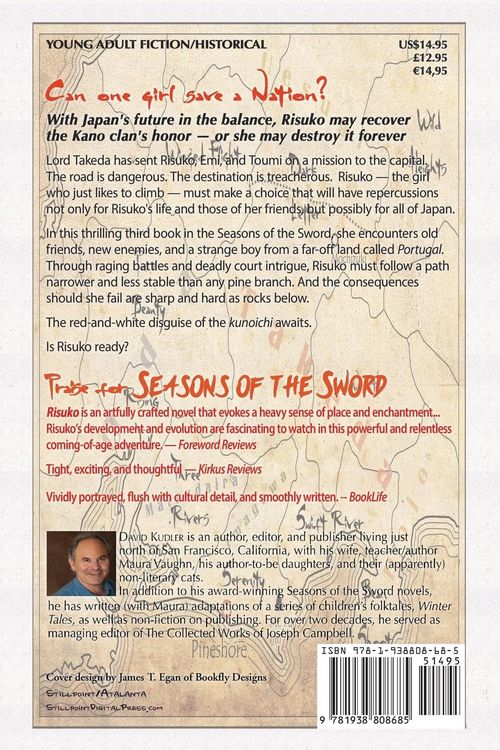 YOUNG ADULT FICTION/HISTORICAL
US$14.95
£12.95
€14,95
Can one girl save a Nation?
With Japan's future in the balance, Risuko may recover
the Kano clan's honor — or she may destroy it forever
Wild
Heights
Lord Takeda has sent Risuko, Emi, and Toumi on a mission to the capital.
The road is dangerous. The destination is treacherous. Risuko — the girl
who just likes to climb — must make a choice that will have repercussions
not only for Risuko's life and those of her friends but possibly for all of Japan.
Dark
Letter
In this thrilling third book in the Seasons of the Sword, she encounters old
friends, new enemies, and a strange boy from a far-off land called Portugal.
Mochizuki
Through raging battles and deadly court intrigue, Risuko must follow a path
narrower and less stable than any pine branch. And the consequences
should she fail are sharp and hard as rocks below.
Beauty
The red-and-white disguise of the kunoichi awaits.
Is Risuko ready?
Praise for SEASONS OF THE SWORD
Rising
Risuko is an artfully crafted novel that evokes a heavy sense of place and enchantment...
Risuko's development and evolution are fascinating to watch in this powerful and relentless
coming-of-age adventure. — Foreword Reviews
Tight, exciting, and thoughtful — Kirkus Reviews
Three
Vividly portrayed, flush with cultural detail, and smoothly written. -- BookLife
Rivers
Swift River
DAVID KUDLER is an author, editor, and publisher living just
north of San Francisco, California, with his wife, teacher/author
Maura Vaughn, his author-to-be daughters, and their (apparently)
non-literary cats.
Serenity
In addition to his award-winning Seasons of the Sword novels,
he has written (with Maura) adaptations of a series of children's folktales, Winter
Tales, as well as non-fiction on publishing. For over two decades, he served as
managing editor of The Collected Works of Joseph Campbell.
Pineshore
Cover design by James T. Egan of Bookfly Designs
STILLPOINT/ATALANTA
STILLPOINTDIGITALPRESS.COM
ISBN 978-1-938808-68-5
51495
9 781938 808685